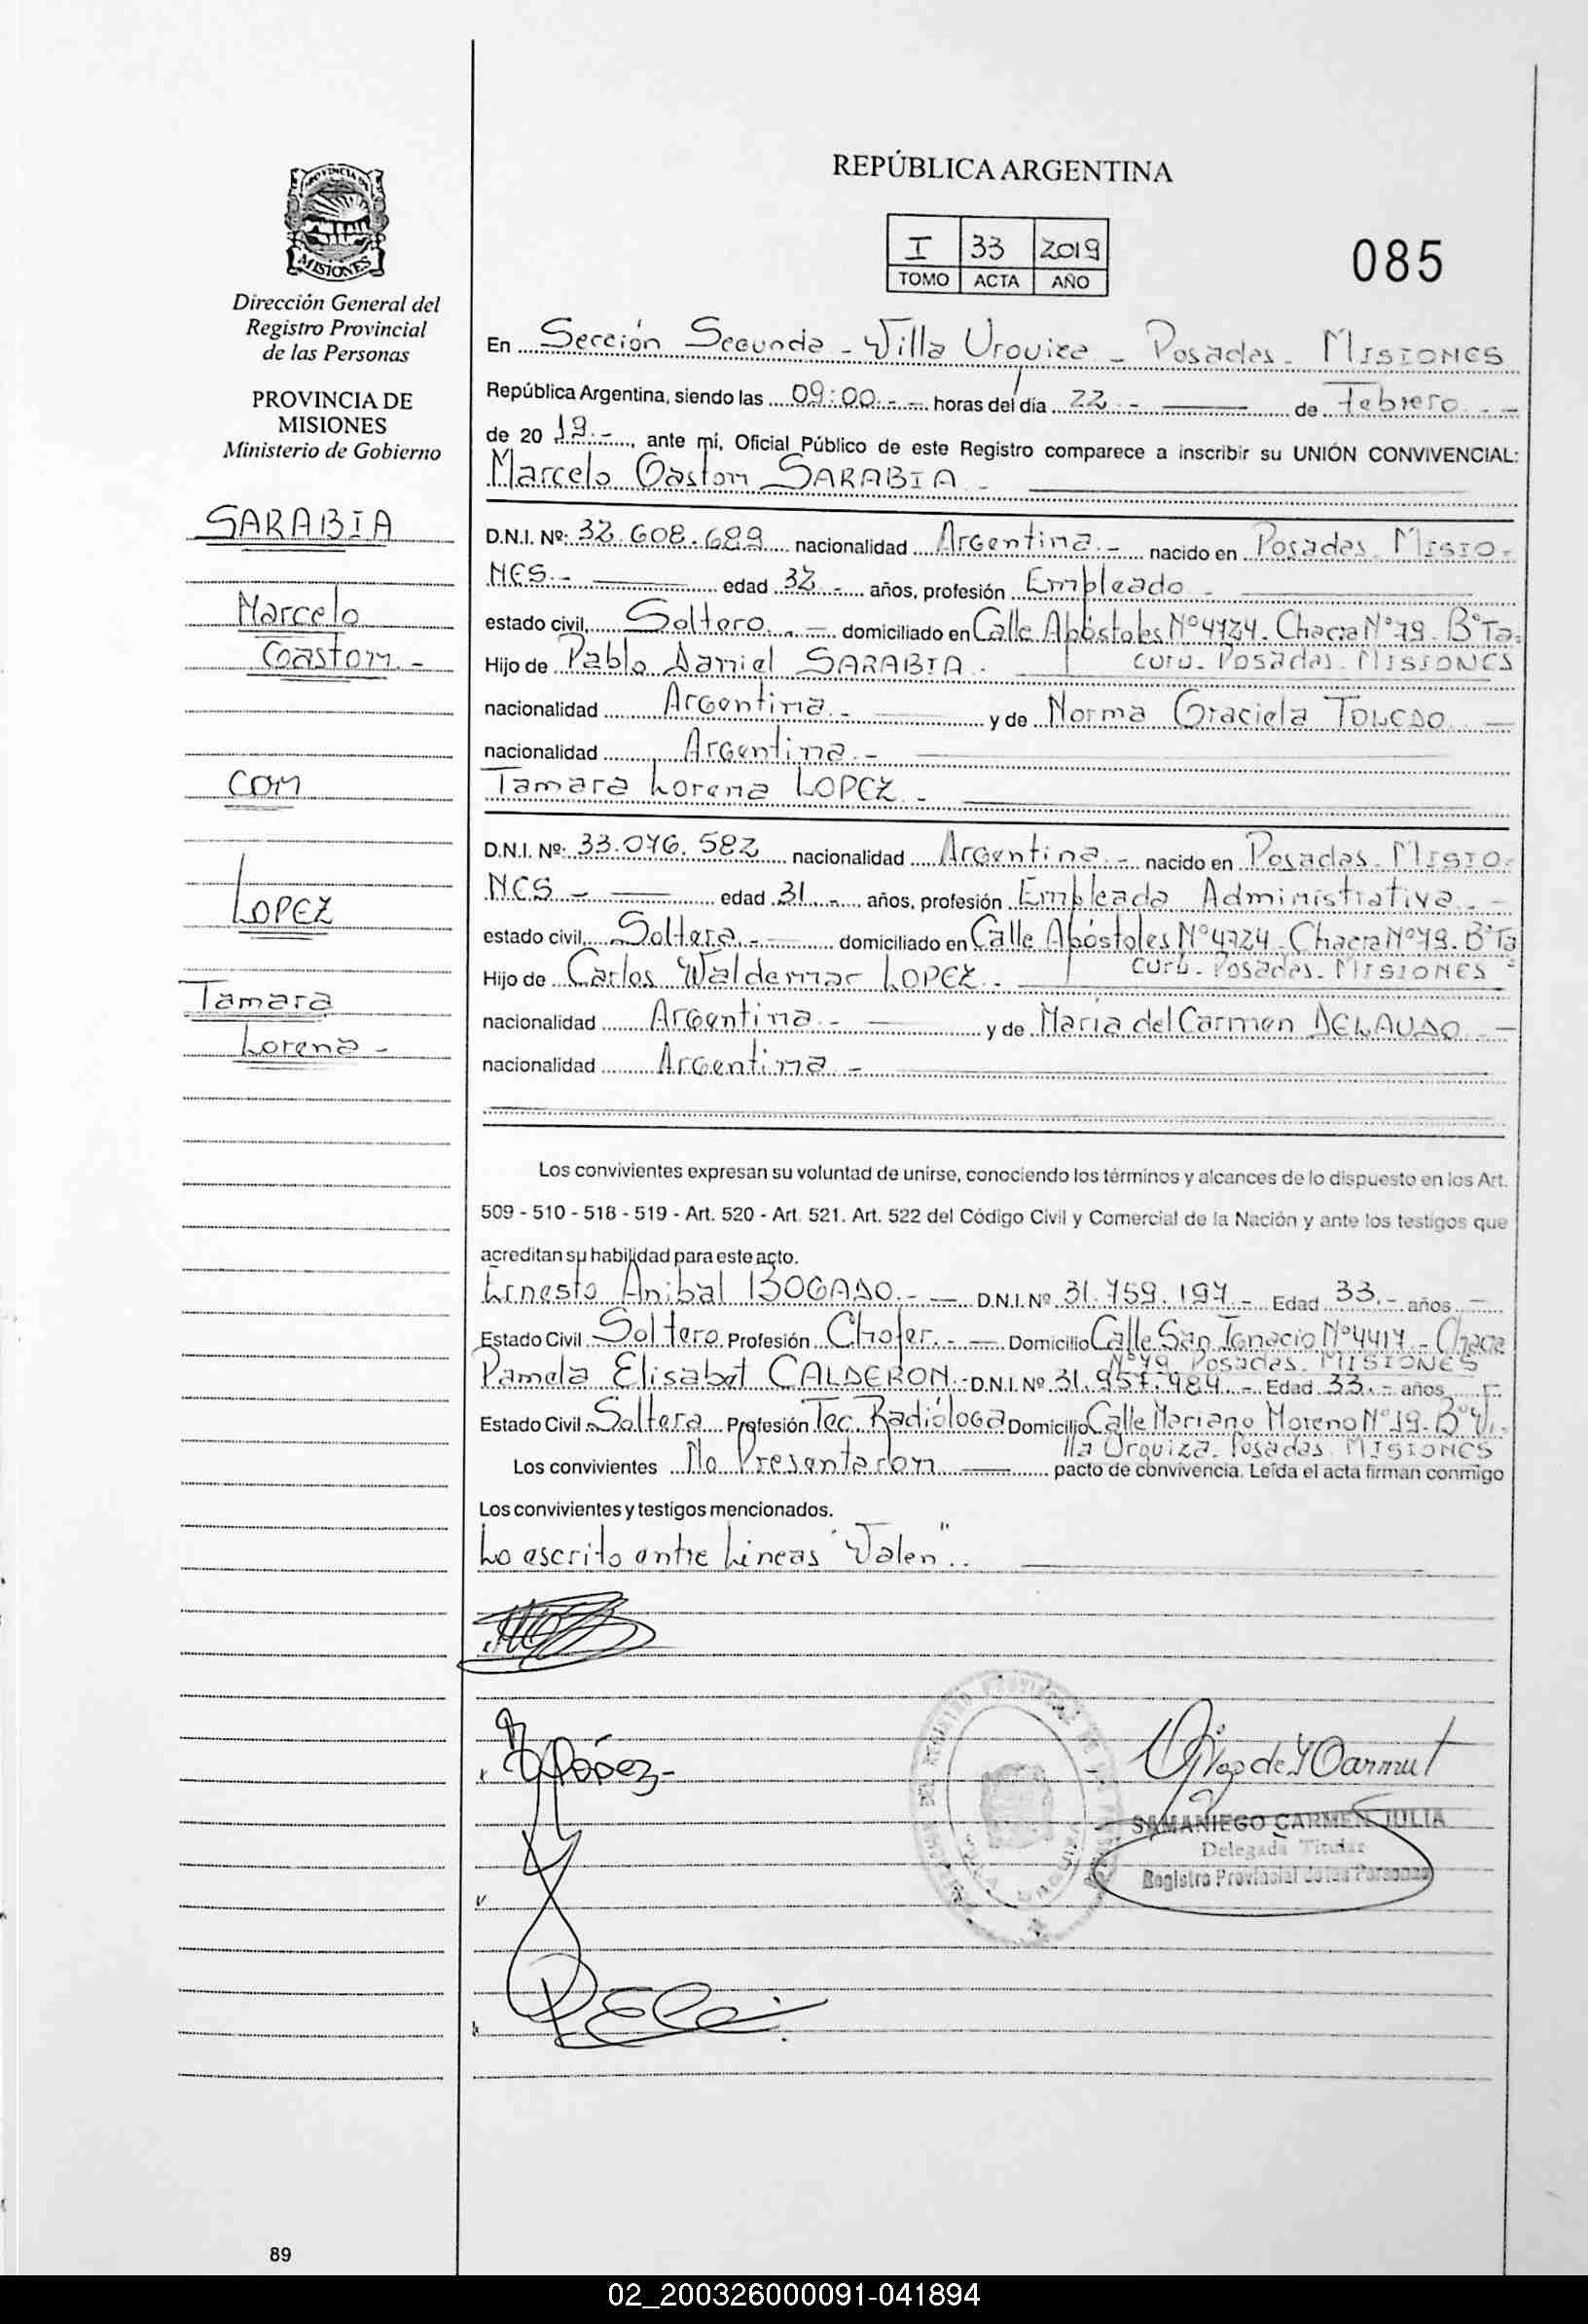 REPÚBLICA ARGENTINA
I 33 2019
TOMO ACTA AÑO
085
PROVINCIA DE
MISIONES
Dirección General del
Registro Provincial
de las Personas
PROVINCIA DE
MISIONES
Ministerio de Gobierno
SARABIA
Marcelo
Gastom.-
com
LOPEZ
Tamara
Lorena -
En Sección Segunda - Villa Urquiza - Posadas - MISIONES
República Argentina, siendo las 09:00.- - horas del día 22.- de Febrero.- -
de 20 19.-, ante mí, Oficial Público de este Registro comparece a inscribir su UNIÓN CONVIVENCIAL:
Marcelo Gastom SARABIA.-
D.N.I. Nº: 32.608.689 nacionalidad Argentina.- nacido en Posadas. MISIO-
NES.- edad 32.- años, profesión Empleado -
estado civil, Soltero.- - domiciliado en Calle Apóstoles Nº4724. Chacra Nº79. Bº Ta-
curu. Posadas. MISIONES
Hijo de Pablo Daniel SARABIA.
nacionalidad Argentina.- y de Norma Graciela TOLEDO -
nacionalidad Argentina.-
Tamara Lorena LOPEZ.-
D.N.I. Nº: 33.076.582 nacionalidad Argentina.- nacido en Posadas. MISIO-
NES.- edad 31.- años, profesión Empleada Administrativa.- -
estado civil, Soltera.- domiciliado en Calle Apóstoles Nº4724. Chacra Nº79. Bº Ta
curu. Posadas. MISIONES -
Hijo de Carlos Waldemar LOPEZ.-
nacionalidad Argentina.- y de María del Carmen DELAUDO -
nacionalidad Argentina -
Los convivientes expresan su voluntad de unirse, conociendo los términos y alcances de lo dispuesto en los Art.
509 - 510 - 518 - 519 - Art. 520 - Art. 521. Art. 522 del Código Civil y Comercial de la Nación y ante los testigos que
acreditan su habilidad para este acto.
Ernesto Anibal BOGADO.- - D.N.I. Nº 31.759.197.- Edad 33.- años -
Estado Civil Soltero Profesión Chofer.- - Domicilio Calle San Ignacio Nº4417 - Chacra
Nº79. Posadas. MISIONES
Pamela Elisabet CALDERON.- D.N.I. Nº 31.957.984.- Edad 33.- años -
Estado Civil Soltera Profesión Tec. Radióloga Domicilio Calle Mariano Moreno Nº19. Bº Vi-
lla Urquiza. Posadas MISIONES
Los convivientes No Presentaron pacto de convivencia. Leída el acta firman conmigo
Los convivientes y testigos mencionados.
Lo escrito entre Lineas "Valen"..
López-
SAMANIEGO CARMEN JULIA
Delegada Titular
Registro Provincial de las Personas
89
02_200326000091-041894